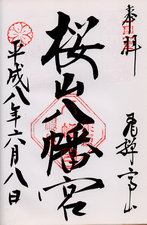 奉拝
飛騨高山
桜山八幡宮
平成八年六月八日